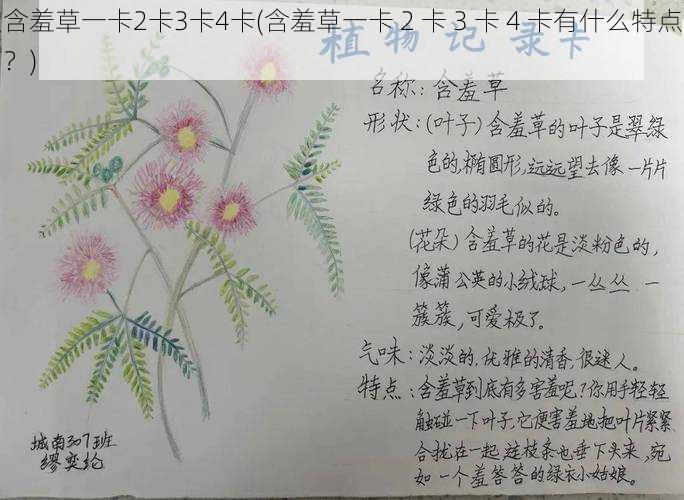 含羞草一卡2卡3卡4卡(含羞草一卡２卡３卡４卡有什么特点
？)
植物记录卡
名称：含羞草
形状：(叶子)含羞草的叶子是翠绿
色的,椭圆形,远远望去像一片片
绿色的羽毛似的。
(花朵)含羞草的花是淡粉色的，
像蒲公英的小绒球，一丛丛 一
簇簇，可爱极了。
气味：淡淡的，优雅的清香，很迷人。
特点：含羞草到底有多害羞呢？你用手轻轻
触碰一下叶子，它便害羞地把叶片紧紧
合拢在一起,连枝条也垂下头来，宛
如一个羞答答的绿衣小姑娘。
城南307班
缪奕纶